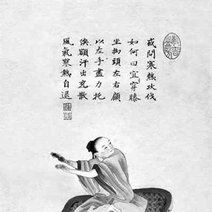 或問寒熱攻伐
如何回宜穿膝
坐拗頭左右顧
以左手盡力托
俟額汗出充散
風氣寒熱自退